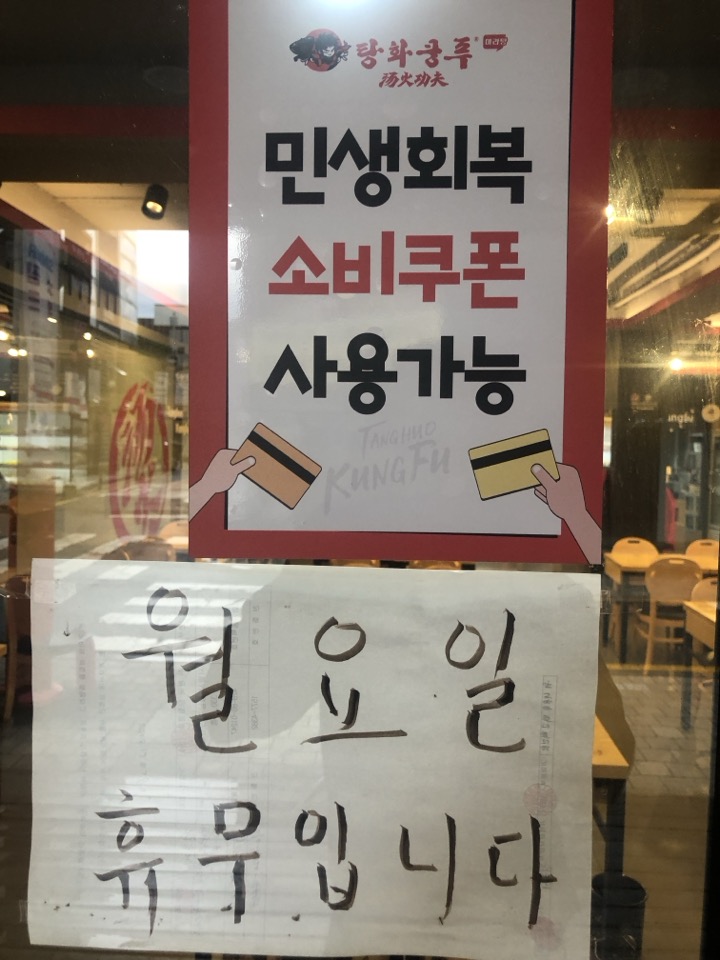 탕화쿵푸® 마라탕
汤火功夫
민생회복
소비쿠폰
사용가능
TANGHUO
KUNGFU
월요일
휴무입니다